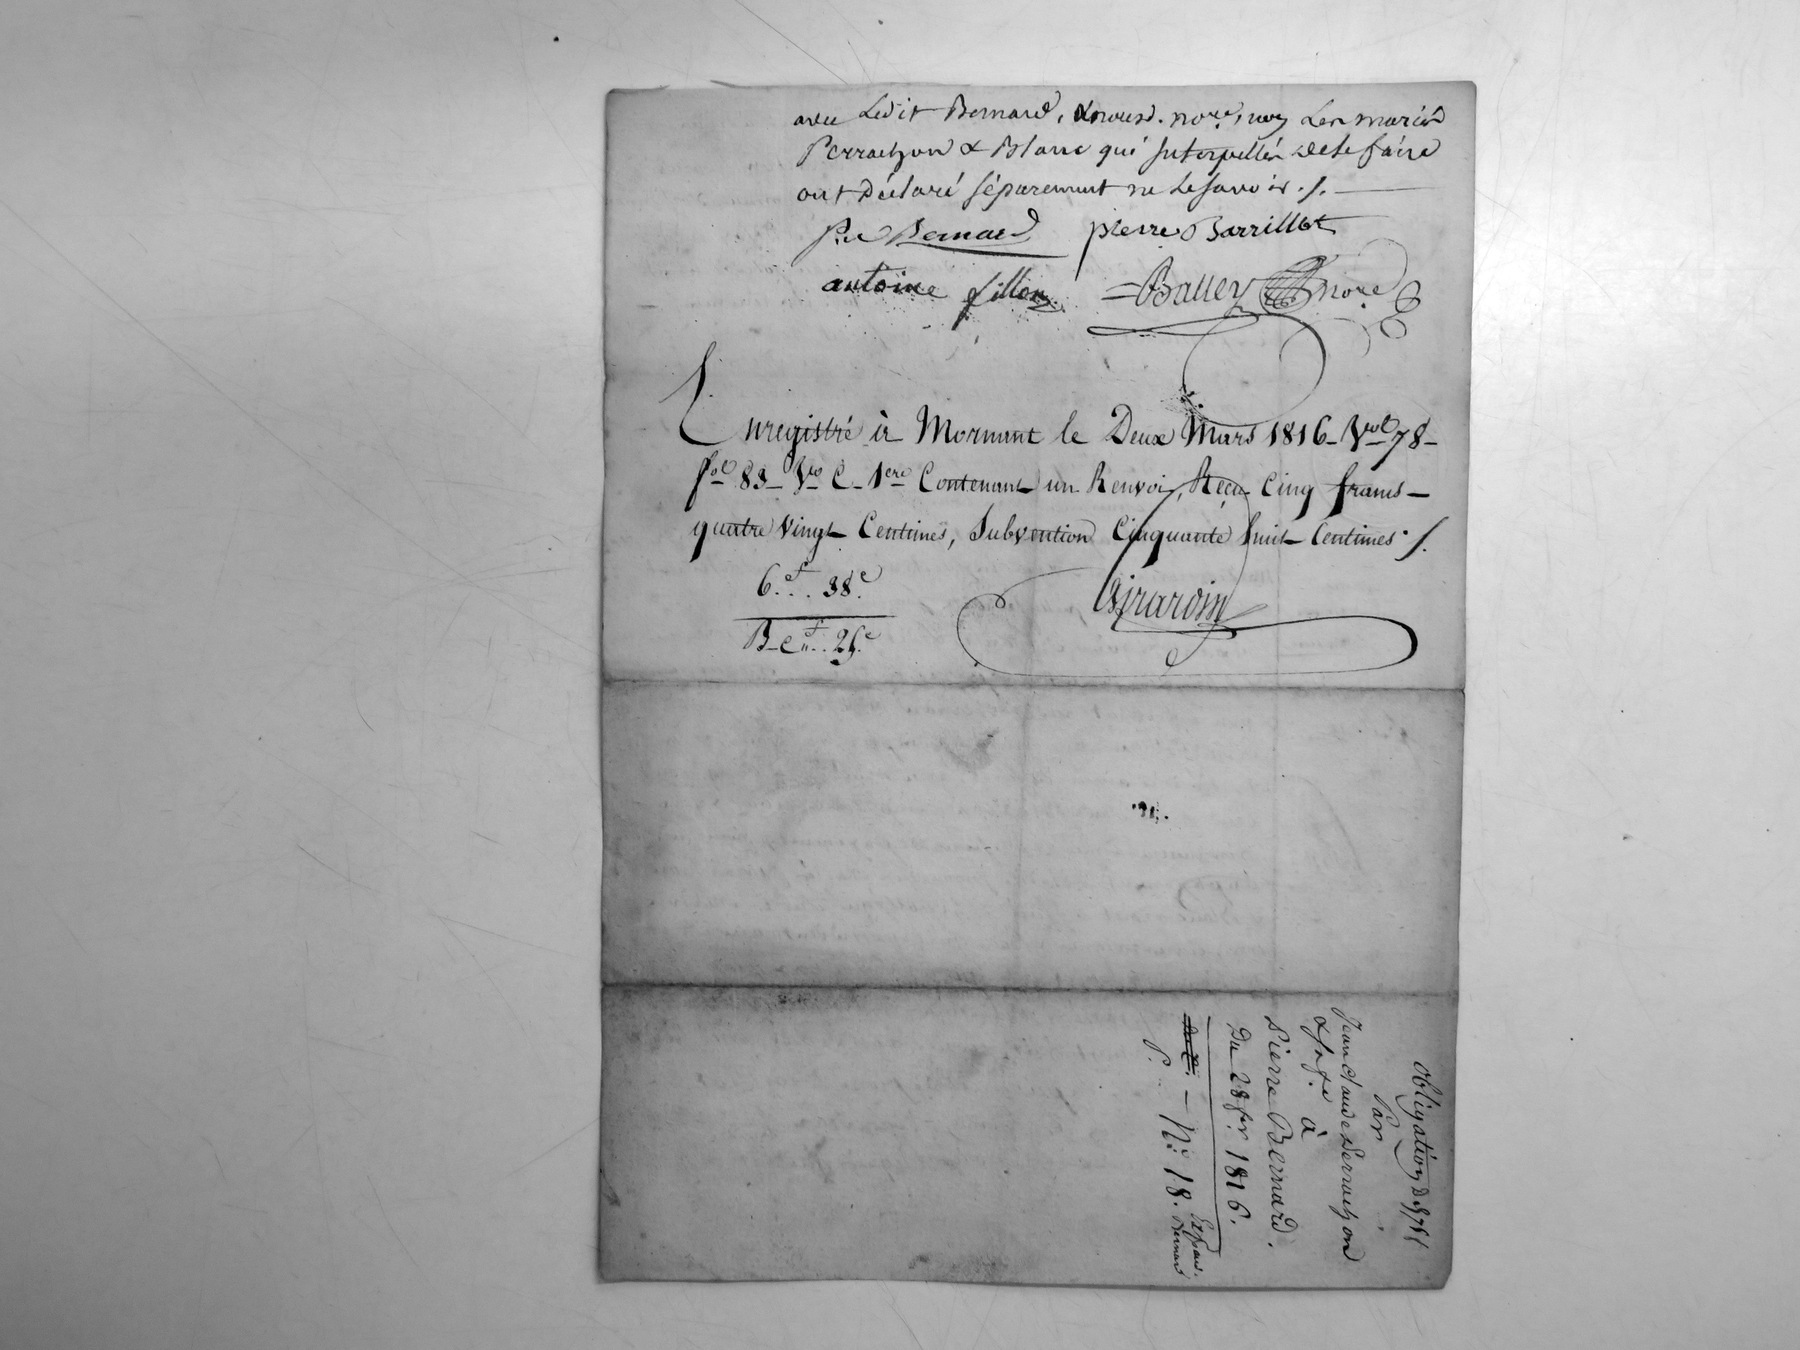 avec Ledit Bernard, & nousd. nore, non Les mariés
Perrachon & Blanc qui Interpellés de le faire
ont Déclaré séparement ne le savoir ./.
Pre Bernard pierre Barrillot
antoine fillon Balley nore
Enregistré à Mornant le Deux Mars 1816 - Vol 78 -
fol 83 - Vo C - 1ere Contenant un Renvoi, Reçu Cinq francs -
quatre vingt Centimes, Subvention Cinquante huit Centimes ./.
6.f.. 38c.
25c
Girardin
Obligation D
Par
Jean Claude Perrachon
& sa fe
à
Pierre Bernard.
Du 28 fer 1816.
No 18.
P.
Bernard